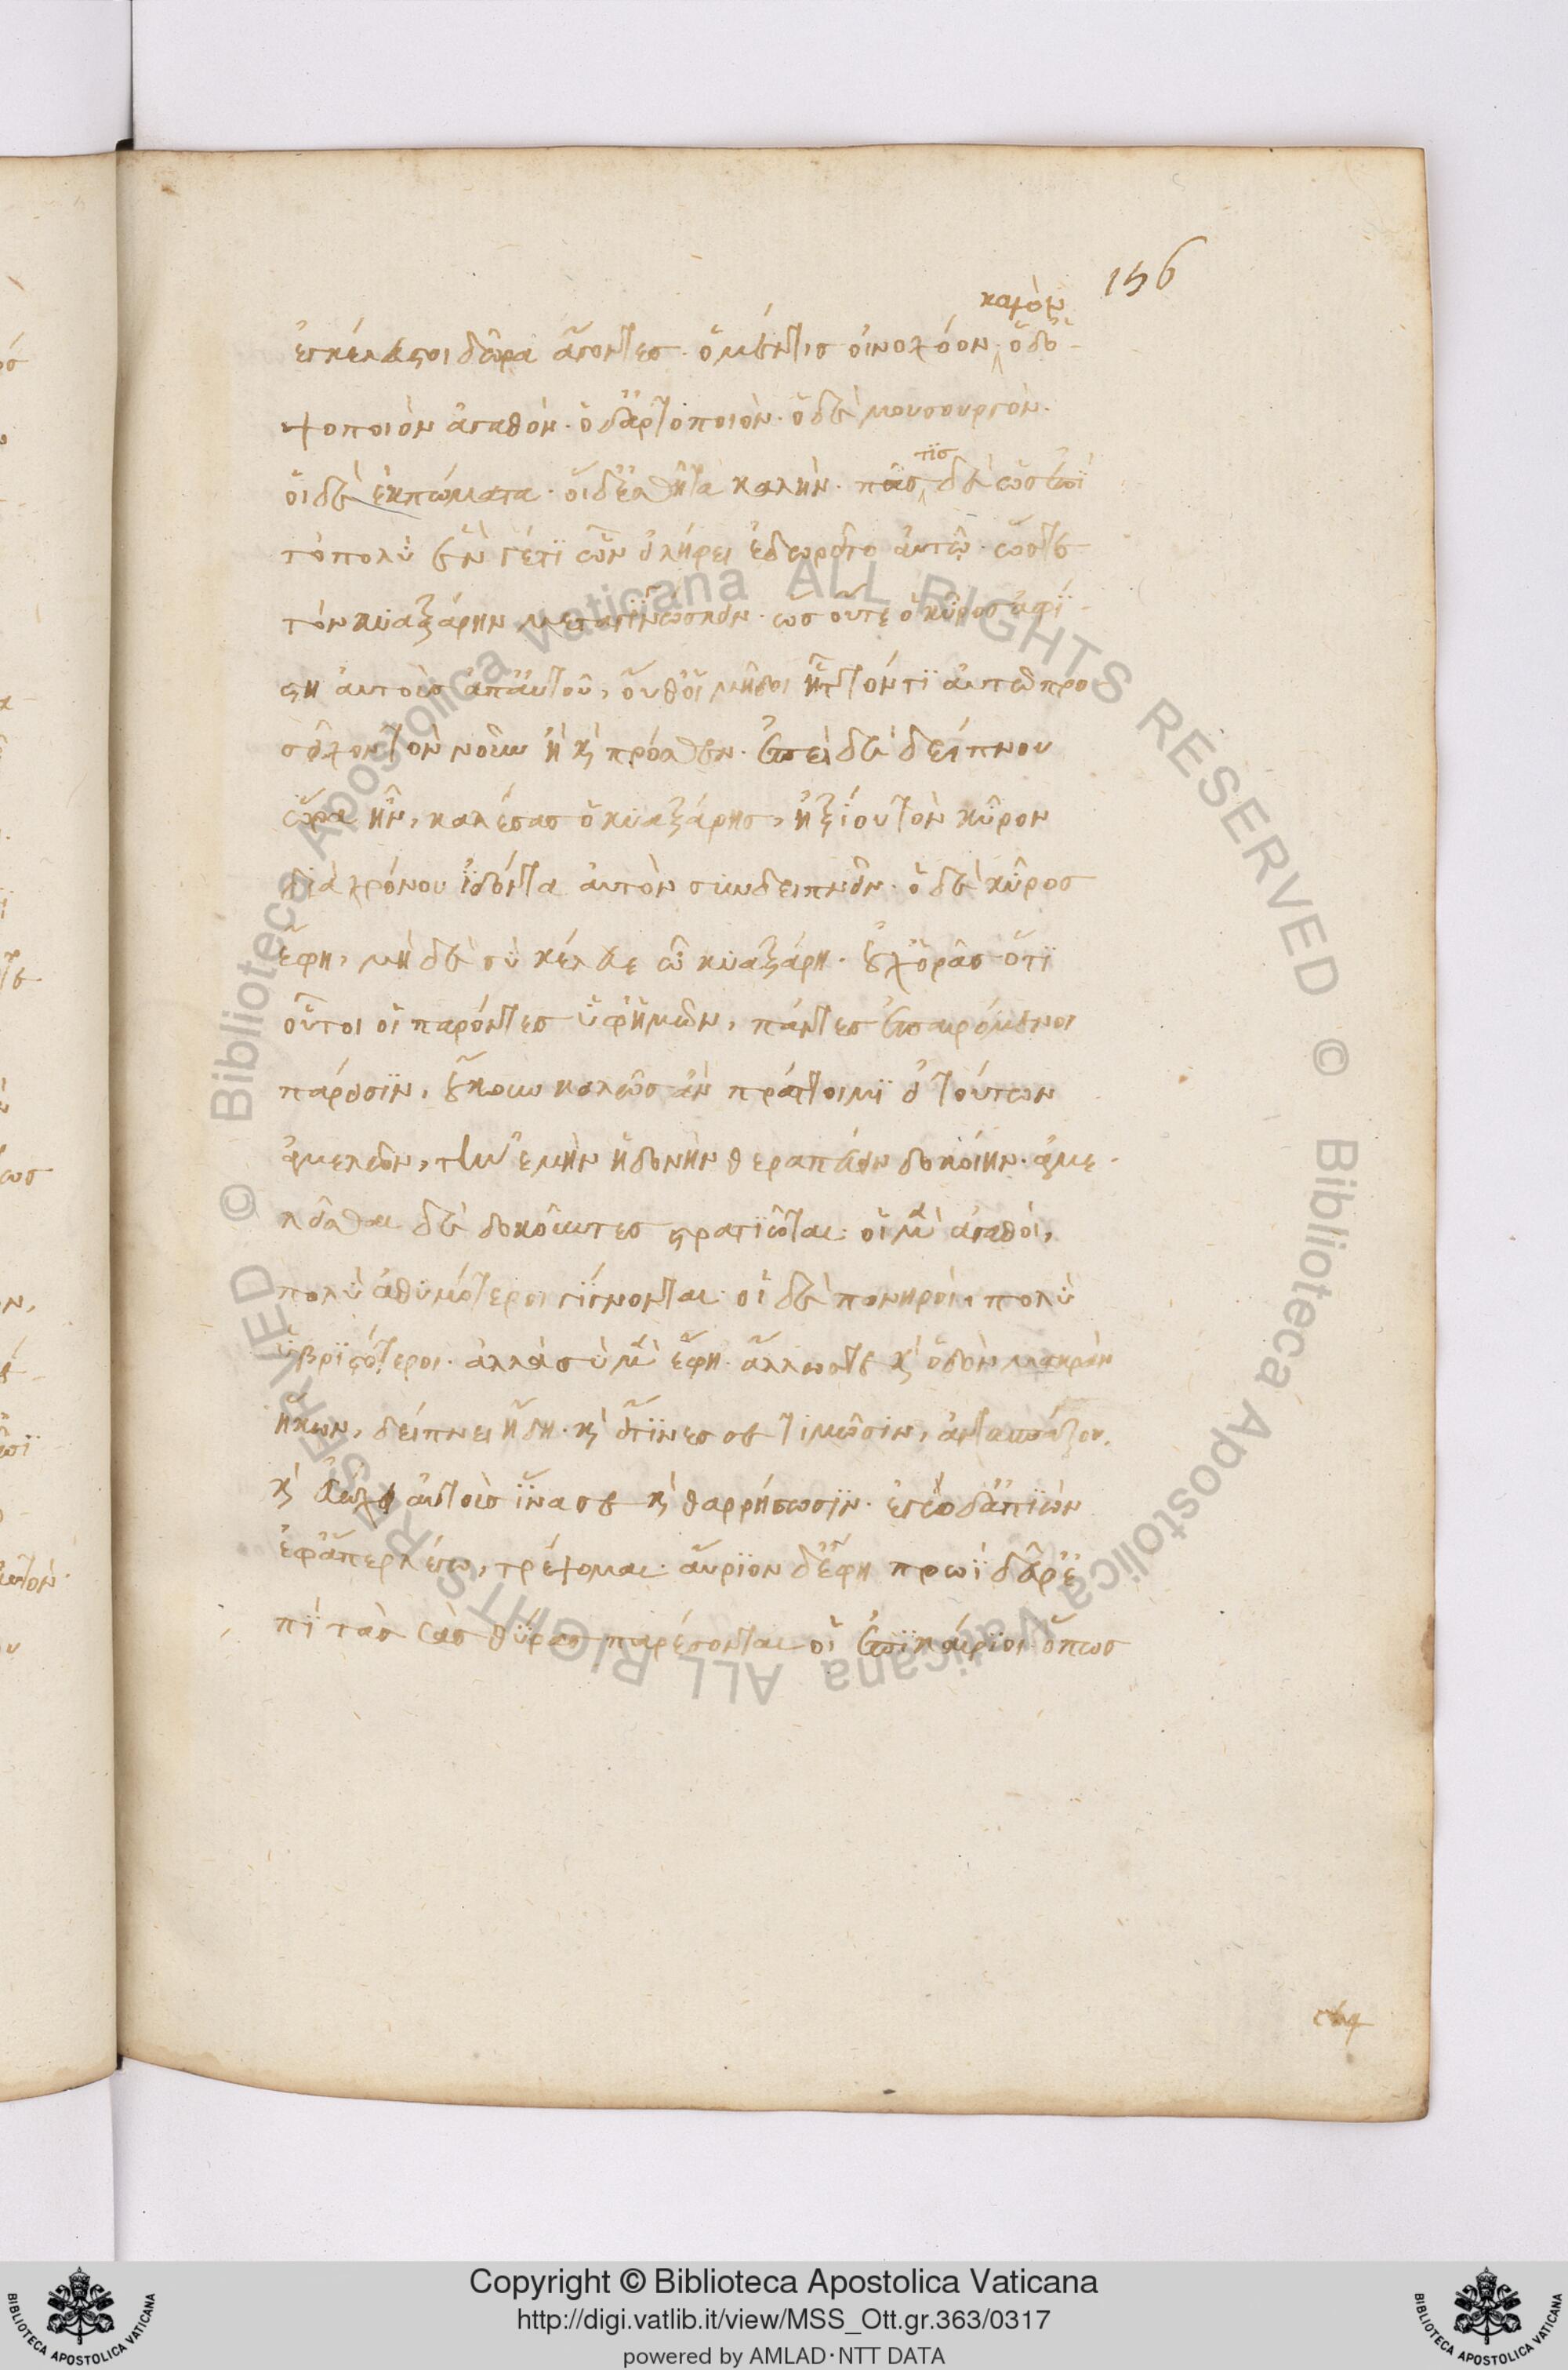 156
καλὸν
ἐγκέλευστοι δῶρα ἄγοντες· ὁ μέν τις οἰνοχόον ὁ δ' ὀ-
ψοποιὸν ἀγαθόν· ὁ δ' ἀρτοποιὸν· ὁ δὲ μουσουργόν·
τις
οἱ δὲ ἐκπώματα· οἱ δ' ἐσθῆτα καλήν· πᾶς δὲ ὡς ἐπὶ
τὸ πολὺ ἕν γέ τι ὧν εἰλήφει ἐδωρεῖτο αὐτῷ· ὥστε
τὸν κυαξάρην μεταγινώσκειν· ὡς οὔτε ὁ κῦρος ἀφί-
στη αὐτοὺς ἀπ' αὐτοῦ, οὔθ' οἱ μῆδοι ἧττόν τι αὐτῷ προ
σεῖχον τὸν νοῦν ἢ καὶ πρόσθεν· ἐπεὶ δὲ δείπνου
ὥρα ἦν, καλέσας ὁ κυαξάρης, ἠξίου τὸν κῦρον
διὰ χρόνου ἰδόντα αὐτὸν συνδειπνεῖν· ὁ δὲ κῦρος
ἔφη, μὴ δὲ σὺ κέλευε ὦ κυαξάρη· οὐχ ὁρᾷς ὅτι
οὗτοι οἱ παρόντες ὑφ' ἡμῶν, πάντες ἐπαιρόμενοι
πάρεισιν, οὔκουν καλῶς ἂν πράττοιμι εἰ τούτων
ἀμελῶν, τὴν ἐμὴν ἡδονὴν θεραπεύειν δοκοίην· ἀμε-
λεῖσθαι δὲ δοκοῦντες στρατιῶται· οἱ μὲν ἀγαθοί,
πολὺ ἀθυμότεροι γίγνονται· οἱ δὲ πονηροί, πολὺ
ὑβριστότεροι· ἀλλὰ σὺ μὲν ἔφη· ἄλλως τε καὶ ὁδὸν μακρὰν
ἥκων, δείπνει ἤδη· καὶ εἴ τινες σε τιμῶσιν, ἀντασπάζου,
καὶ εὐώχει αὐτοὺς ἵνα σε καὶ θαρρήσωσιν· ἐγὼ δ' ἀπιὼν
ἐφ' ἅπερ λέγω, τρέψομαι· αὔριον δ' ἔφη πρωῒ δεῦρ' ἐ
πὶ τὰς σὰς θύρας παρέσονται οἱ ἐπικαίριοι· ὅπως
© Biblioteca Apostolica Vaticana ALL RIGHTS RESERVED © Biblioteca Apostolica Vaticana ALL RIGHTS RESERVED
Copyright © Biblioteca Apostolica Vaticana
http://digi.vatlib.it/view/MSS_Ott.gr.363/0317
powered by AMLAD·NTT DATA
BIBLIOTECA APOSTOLICA VATICANA
BIBLIOTECA APOSTOLICA VATICANA